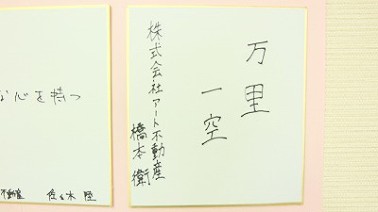 万里
一空
株式会社アート不動産
橋本衛
な心を持つ
不動産 佐々木 陸